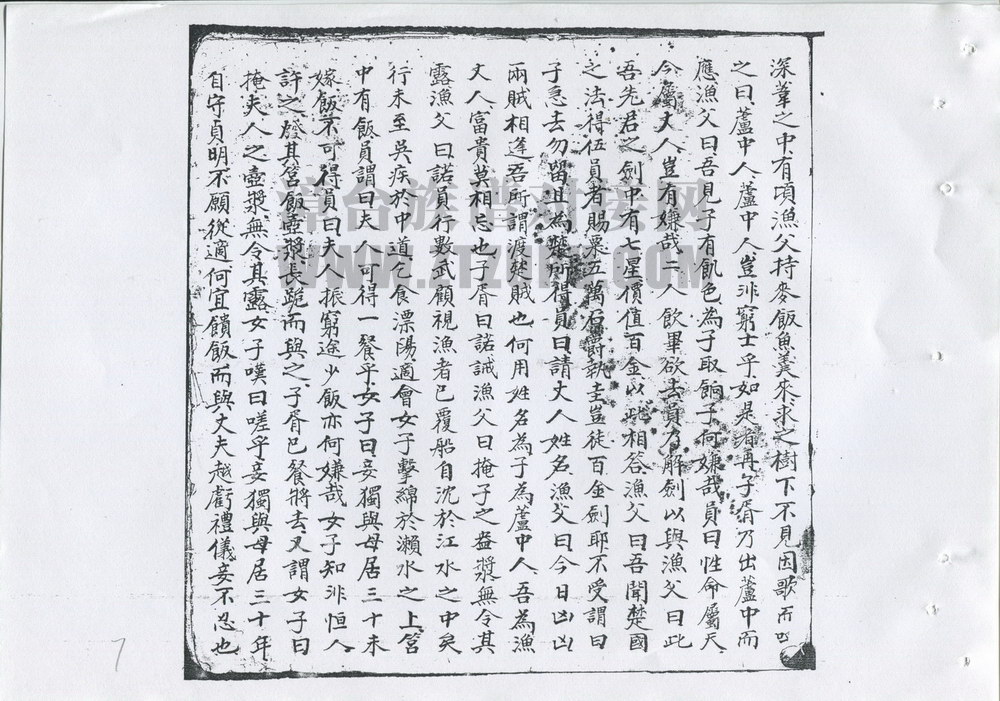 深葦之中有頃漁父持麥飯魚羹來求之樹下不見因歌而呼
之曰蘆中人蘆中人豈非窮士乎如是者再子胥乃出蘆中而
應漁父曰吾見子有飢色為子取餉子何嫌哉員曰性命屬天
今屬丈人豈有嫌哉二人飲畢欲去員乃解劍以與漁父曰此
吾先君之劍中有七星價值百金以此相答漁父曰吾聞楚國
之法得伍員者賜粟五萬石爵執圭豈徒百金劍耶不受謂曰
子急去勿留且為楚所得員曰請丈人姓名漁父曰今日凶凶
兩賊相逢吾所謂渡楚賊也何用姓名為子為蘆中人吾為漁
丈人富貴莫相忘也子胥曰諾誡漁父曰掩子之盎漿無令其
露漁父曰諾員行數武顧視漁者已覆船自沈於江水之中矣
行未至吳疾於中道乞食漂陽適會女子擊綿於瀨水之上筥
中有飯員謂曰夫人可得一餐乎女子曰妾獨與母居三十未
嫁飯不可得員曰夫人振窮途少飯亦何嫌哉女子知非恒人
許之發其筥飯壺漿長跪而與之子胥已餐將去又謂女子曰
掩夫人之壺漿無令其露女子嘆曰嗟乎妾獨與母居三十年
自守貞明不願從適何宜饋飯而與丈夫越虧禮儀妾不忍也
7